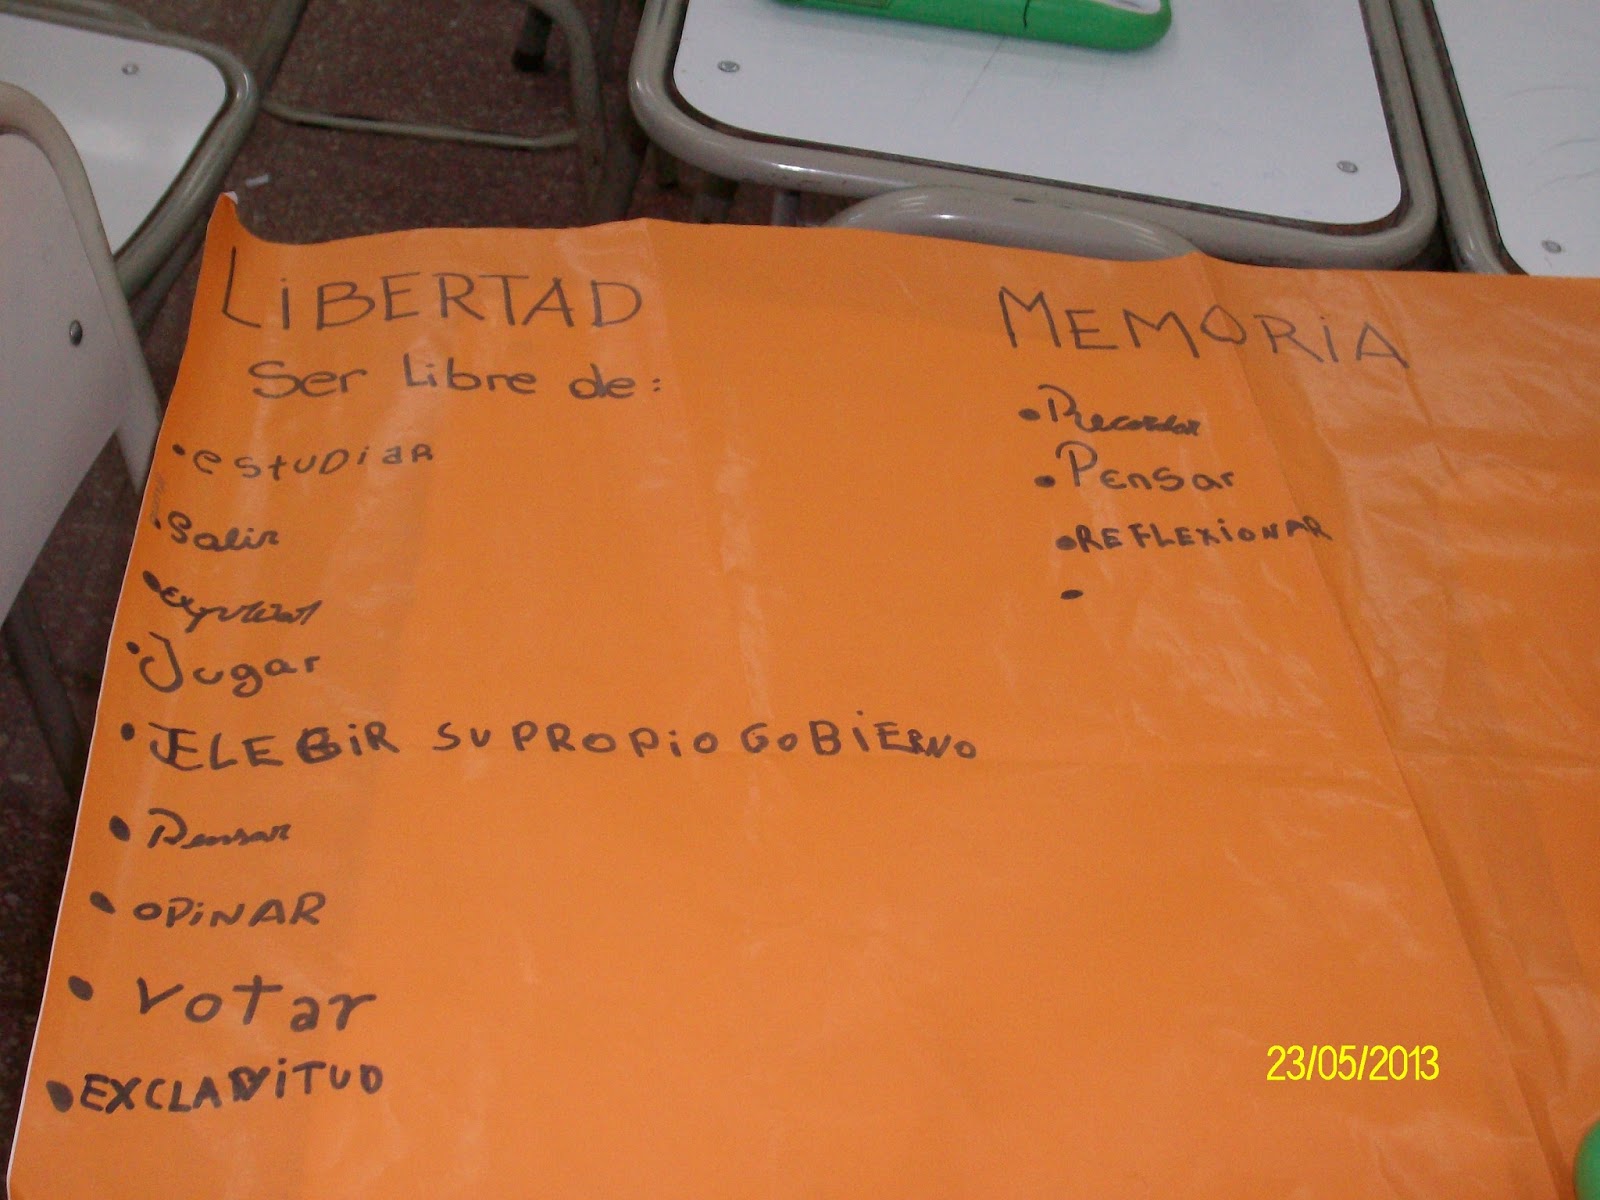 LiBERTAD
Ser Libre de:
• estudiar
• Salir
• expresar
• Jugar
• ELEGiR SU PROPiO GOBiERNO
• Pensar
• OPiNAR
• votar
• EXCLAVITUD
MEMORiA
• Recordar
• Pensar
• REFLEXiONAR
•
23/05/2013